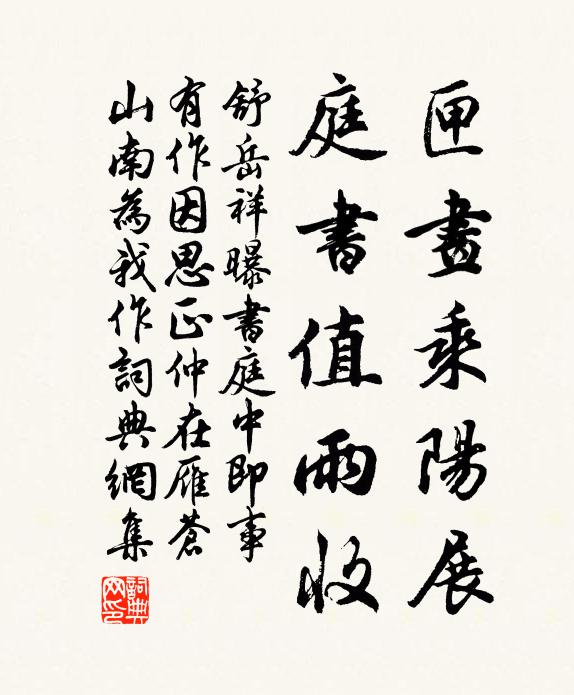 匣畫乘陽展
庭書值雨收
舒岳祥曝書庭中即事
有作因思正仲在雁蒼
山南為我作詞典網集
詞典網印